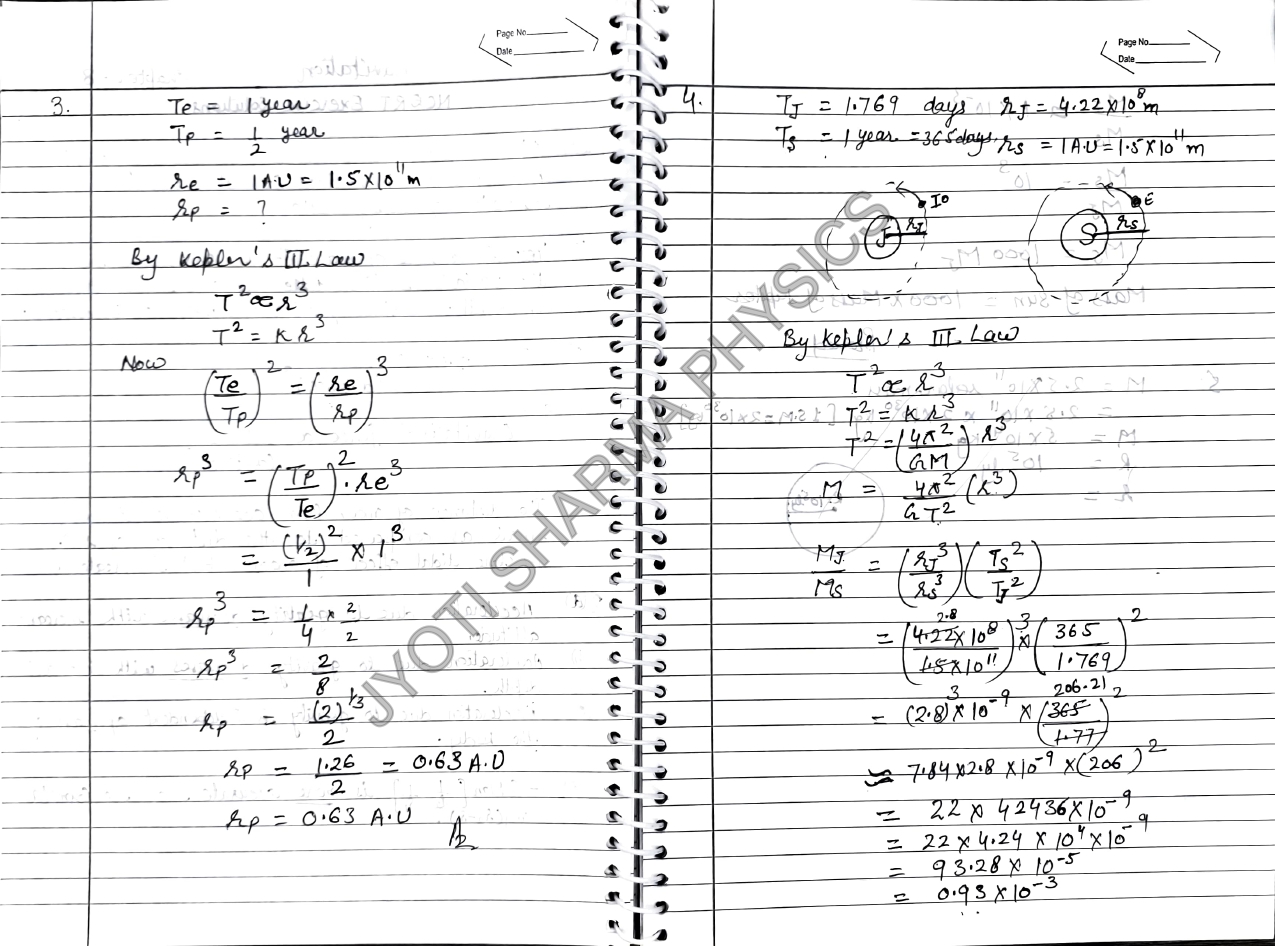 Page No.
Date
3.
Te = 1 year
Tp = 1/2 year
re = 1A.U = 1.5×10¹¹m
rp = ?
By Kepler's III Law
T² ∝ r³
T² = K r³
Now
(Te/Tp)² = (re/rp)³
rp³ = (Tp/Te)² · re³
= (1/2)²/1 × 1³
rp³ = 1/4 × 2/2
rp³ = 2/8
rp = (2)^1/3 / 2
rp = 1.26/2 = 0.63 A.U
rp = 0.63 A.U
Page No.
Date
4.
TJ = 1.769 days rJ = 4.22×10⁸m
Ts = 1 year = 365days, rs = 1A.U = 1.5×10¹¹m
Io
J
rJ
E
S
rs
By Kepler's III Law
T² ∝ r³
T² = K r³
T² = (4π²/GM) r³
M = 4π²/GT² (r³)
MJ/Ms = (rJ³/rs³)(Ts²/TJ²)
2.8
= (4.22×10⁸/1.5×10¹¹)³ × (365/1.769)²
206.21
= (2.8)³×10⁻⁹ × (365/1.77)²
≈ 7.84×2.8×10⁻⁹×(206)²
= 22 × 42436×10⁻⁹
= 22×4.24×10⁴×10⁻⁹
= 93.28× 10⁻⁵
= 0.93×10⁻³
JYOTI SHARMA PHYSICS